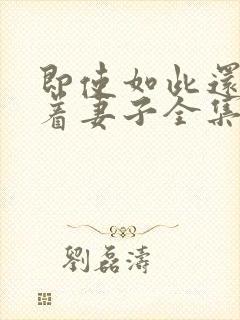 即使如此還
着妻子全集
劉磊濤